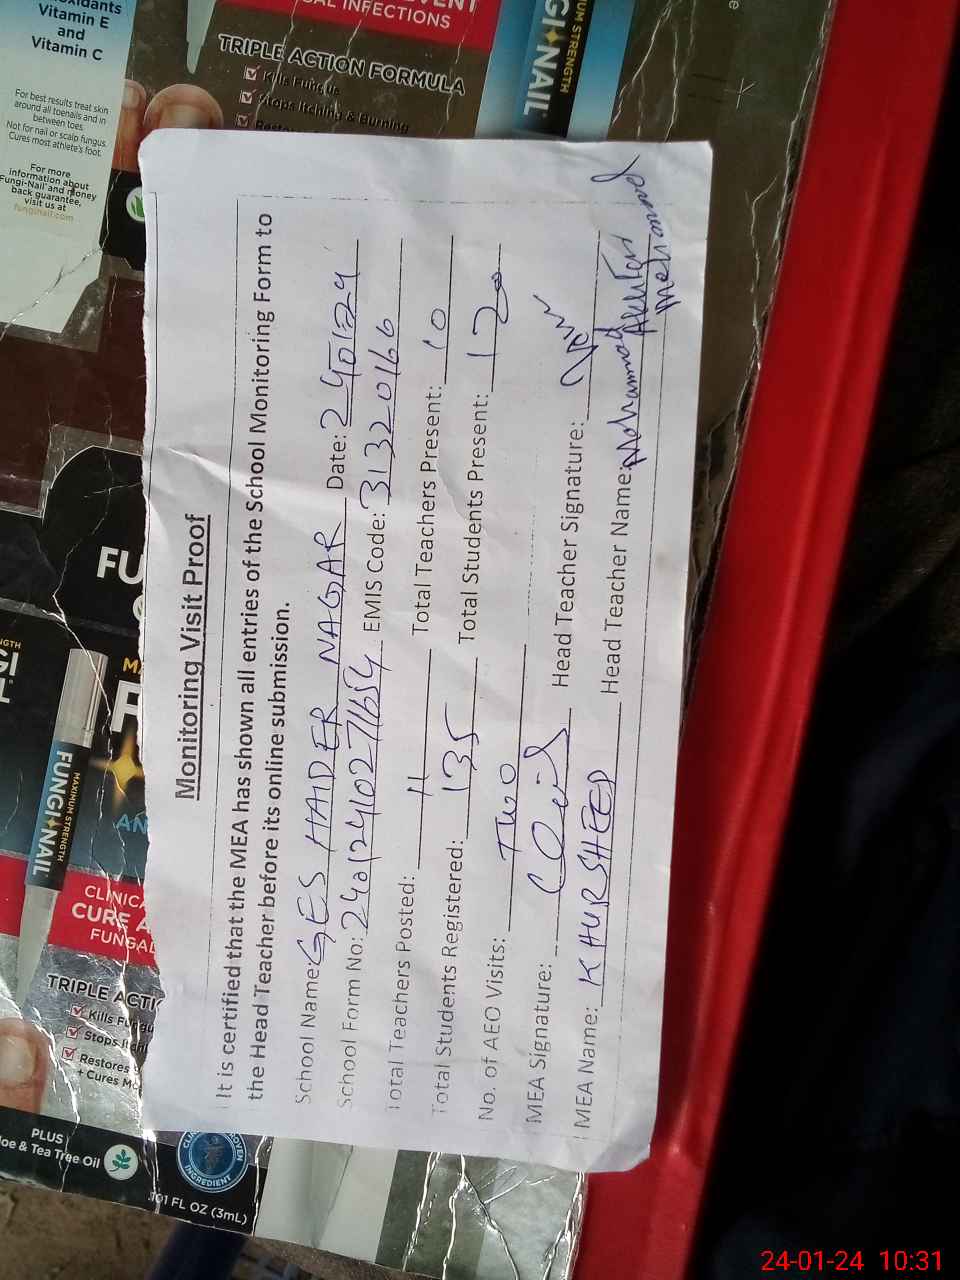 Monitoring Visit Proof
It is certified that the MEA has shown all entries of the School Monitoring Form to
the Head Teacher before its online submission.
School Name: GES HAIDER NAGAR Date: 240124
School Form No: 24012410271654 EMIS Code: 31320166
Total Teachers Posted: 11 Total Teachers Present: 10
Total Students Registered: 135 Total Students Present: 120
No. of AEO Visits: TWO
MEA Signature: Head Teacher Signature:
MEA Name: KHURSHEED Head Teacher Name: Mohammad Akhtar
Vitamin E
and
Vitamin C
For best results treat skin
around all toenails and in
between toes.
Not for nail or scalp fungus.
Cures most athlete's foot.
For more
information about
Fungi-Nail and money
back guarantee,
visit us at
funginail.com
INFECTIONS
TRIPLE ACTION FORMULA
Kills Fungus
Stops Itching & Burning
GI NAIL
STRENGTH
FU
MAXIMUM STRENGTH
FUNGI NAIL
AN
CLINICA
CURE A
FUNGAL
TRIPLE ACTI
Kills Fungu
Stops Itchi
Restores
+ Cures Mo
PLUS
loe & Tea Tree Oil
INGREDIENT
.101 FL OZ (3mL)
24-01-24 10:31